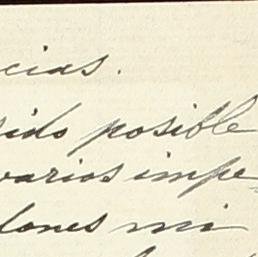 cias.
sido posible
varios impe-
dones mi